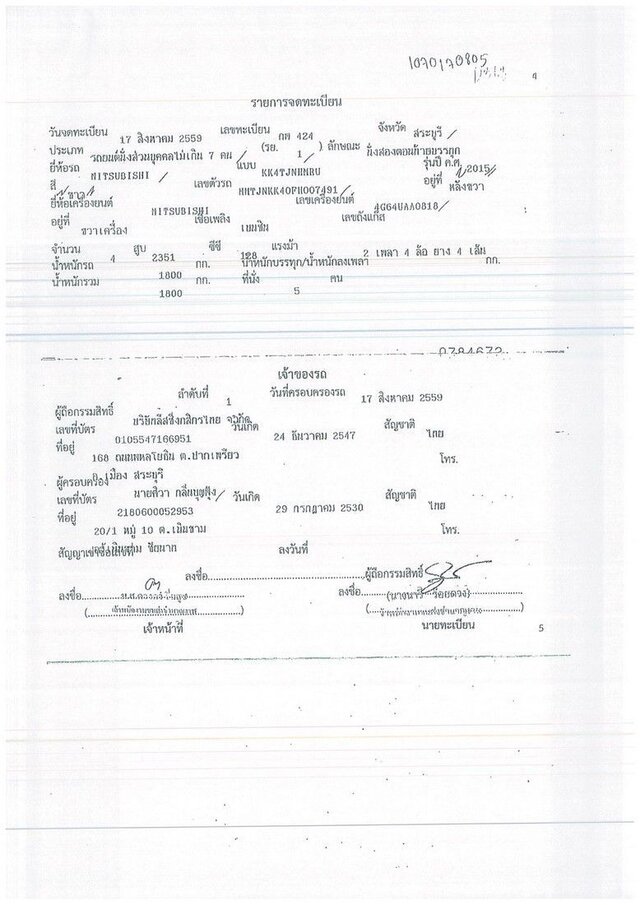 1070170805
4
รายการจดทะเบียน
วันจดทะเบียน 17 สิงหาคม 2559 เลขทะเบียน กท 424 จังหวัด สระบุรี
ประเภท รถยนต์นั่งส่วนบุคคลไม่เกิน 7 คน (รย. 1 ) ลักษณะ นั่งสองตอนท้ายบรรทุก
ยี่ห้อรถ MITSUBISHI แบบ KK4TJNHHRU รุ่นปี ค.ศ. 2015
สี ขาว เลขตัวรถ อยู่ที่ หลังขวา
ยี่ห้อเครื่องยนต์ MITSUBISHI เลขเครื่องยนต์ 4G64UAA0818
อยู่ที่ ขวาเครื่อง เชื้อเพลิง เบนซิน เลขถังแก๊ส
จำนวน 4 สูบ 2351 ซีซี 128 แรงม้า 2 เพลา 4 ล้อ ยาง 4 เส้น
น้ำหนักรถ 1800 กก. น้ำหนักบรรทุก/น้ำหนักลงเพลา กก.
น้ำหนักรวม 1800 กก. ที่นั่ง 5 คน
0784672
เจ้าของรถ
ลำดับที่ 1 วันที่ครอบครองรถ 17 สิงหาคม 2559
ผู้ถือกรรมสิทธิ์ บริษัทลีสซิ่งกสิกรไทย จำกัด
เลขที่บัตร 0105547166951 วันเกิด 24 ธันวาคม 2547 สัญชาติ ไทย
ที่อยู่ 168 ถนนพหลโยธิน ต.ปากเพรียว โทร.
อ.เมือง สระบุรี
ผู้ครอบครอง นายศิวา
เลขที่บัตร 2180600052953 วันเกิด 29 กรกฎาคม 2530 สัญชาติ ไทย
ที่อยู่ 20/1 หมู่ 10 ต.เนินขาม โทร.
อ.เนินขาม ชัยนาท
สัญญาเช่าซื้อเลขที่ ลงวันที่
ลงชื่อ ผู้ถือกรรมสิทธิ์
ลงชื่อ ลงชื่อ
(นางนารี ร้อยดวง)
เจ้าหน้าที่ นายทะเบียน
5